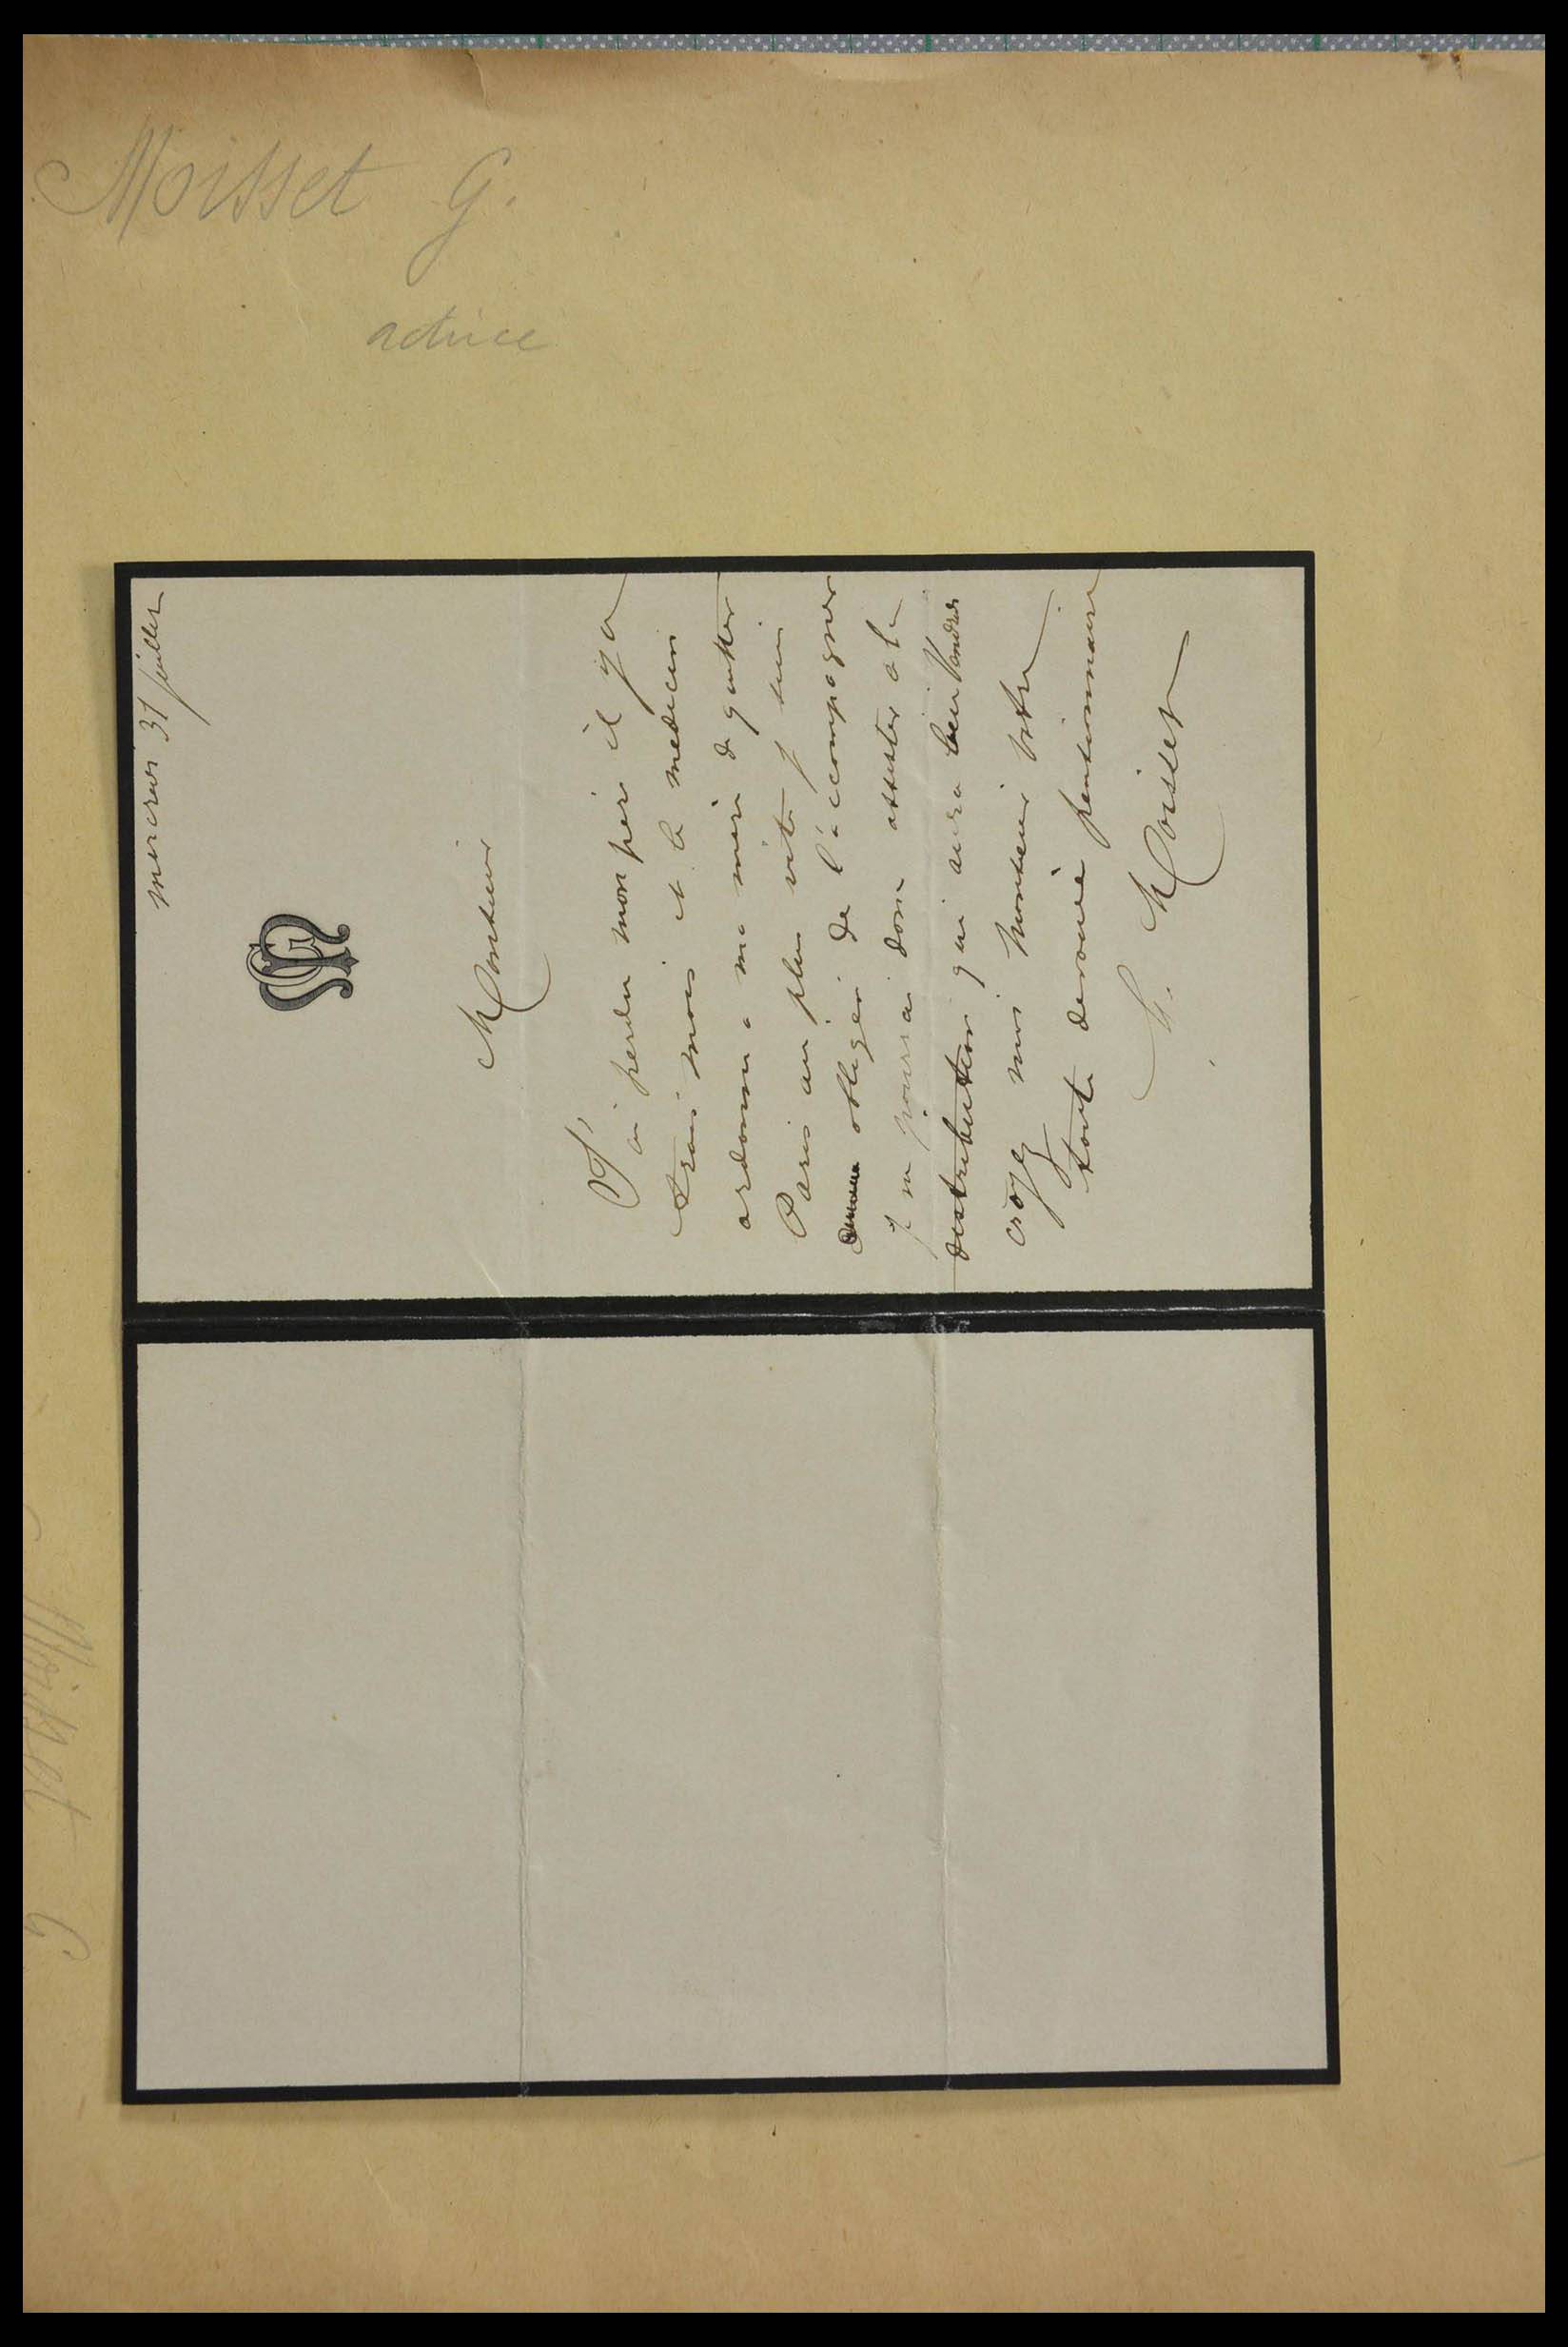 Moisset G.
actrice
mercredi 31 juillet
GM
Monsieur
J'ai perdu mon père il y a
trois mois et le medecin
ordonne a ma mère de quitter
Paris au plus vite je suis
obligée de l'accompagner
je ne pourrai donc assister a la
distribution qui aura lieu Vendredi
croyez moi Monsieur votre
toute devouée pensionnaire
G. Moisset
Moisset G